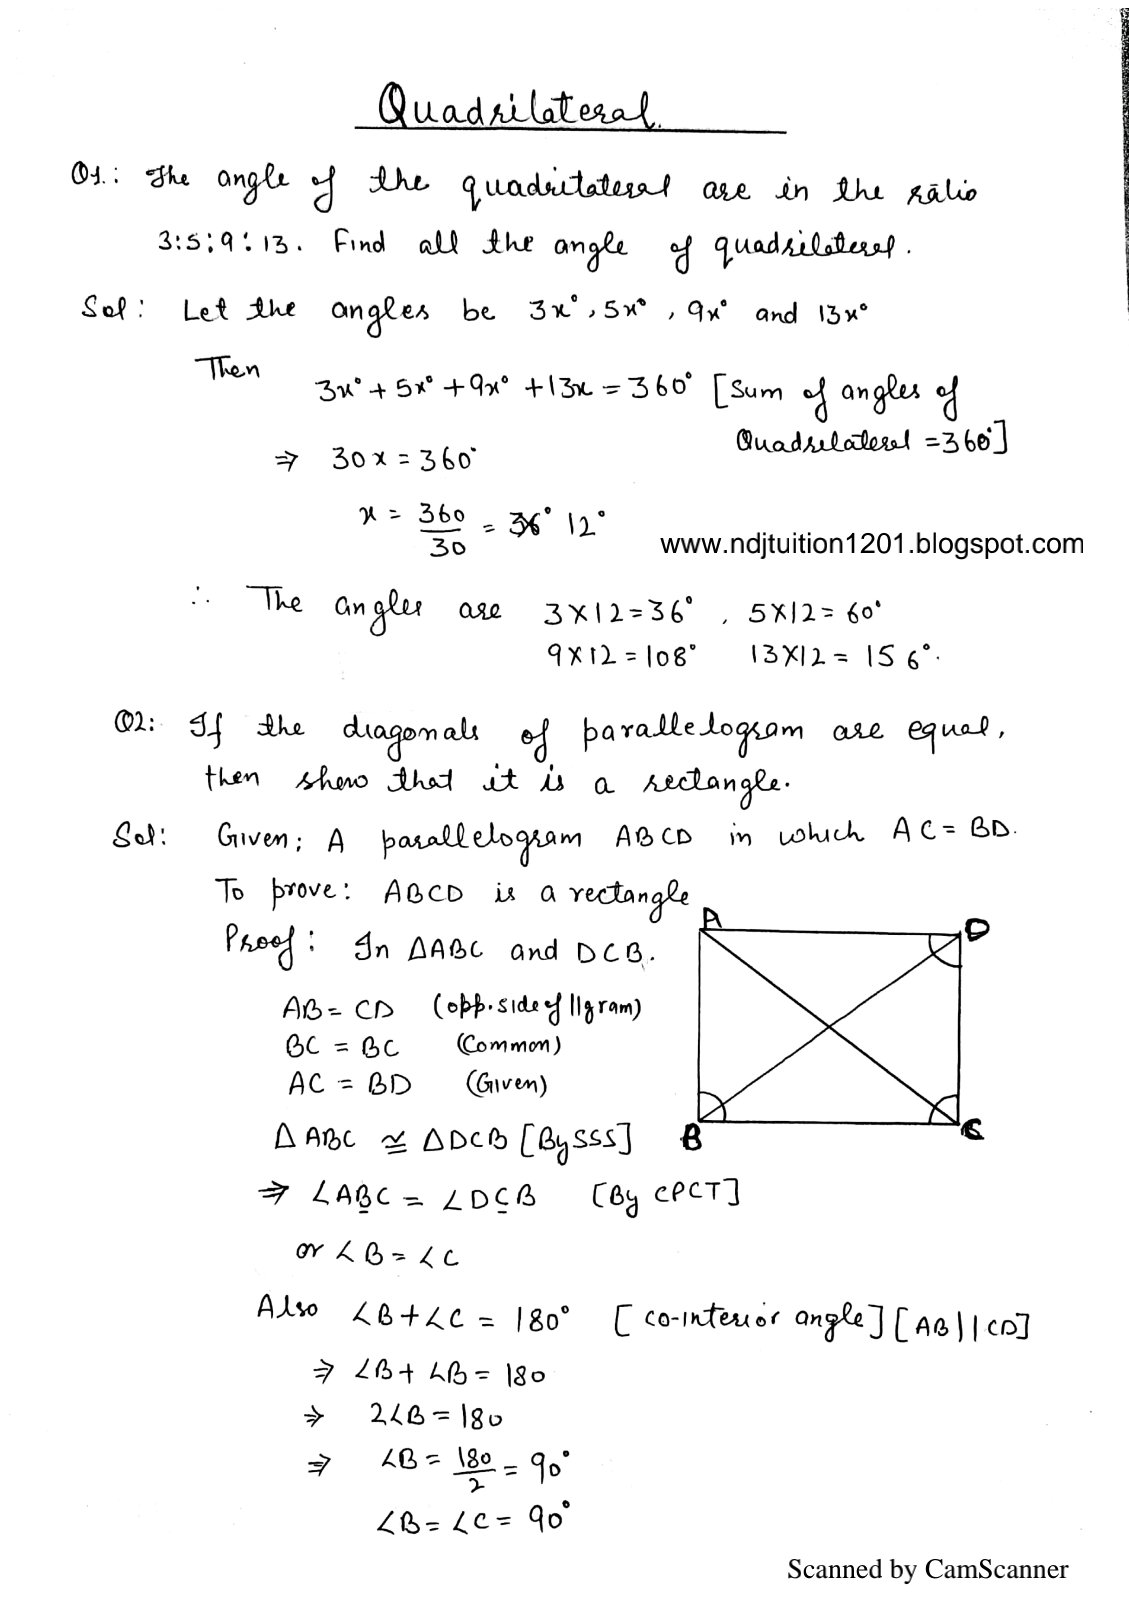 Quadrilateral.
Q1.: The angle of the quadrilateral are in the ratio
3:5:9:13. Find all the angle of quadrilateral.
Sol: Let the angles be 3x°, 5x°, 9x° and 13x°
Then
3x° + 5x° + 9x° + 13x = 360° [Sum of angles of
Quadrilateral = 360°]
⇒ 30x = 360°
x = 360/30 = 36° 12°
www.ndjtuition1201.blogspot.com
∴ The angles are 3×12=36°, 5×12=60°
9×12=108° 13×12=156°.
Q2: If the diagonals of parallelogram are equal,
then show that it is a rectangle.
Sol: Given: A parallelogram ABCD in which AC = BD.
To prove: ABCD is a rectangle
Proof: In ΔABC and DCB.
AB = CD (opp. side of ||gram)
BC = BC (Common)
AC = BD (Given)
ΔABC ≅ ΔDCB [By SSS]
⇒ ∠ABC = ∠DCB [By CPCT]
or ∠B = ∠C
Also ∠B + ∠C = 180° [co-interior angle] [AB || CD]
⇒ ∠B + ∠B = 180
⇒ 2∠B = 180
⇒ ∠B = 180/2 = 90°
∠B = ∠C = 90°
A
D
B
C
Scanned by CamScanner